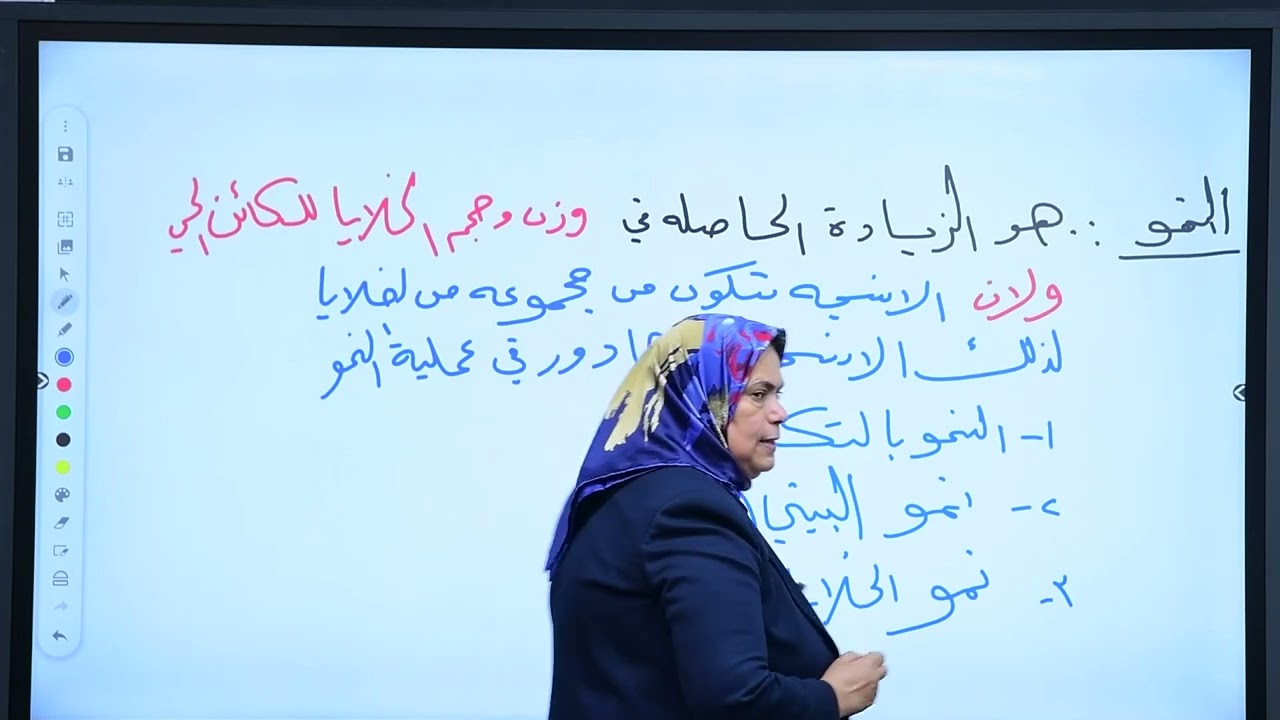 النمو :. هو الزيادة الحاصله في وزن وحجم الخلايا للكائن الحي
ولان الانسجه تتكون من مجموعه من لخلايا
لذلك الانسجة دور في عملية النمو
١- النمو بالتكـ
٢- نمو البيني
٣- نمو الخلايـ